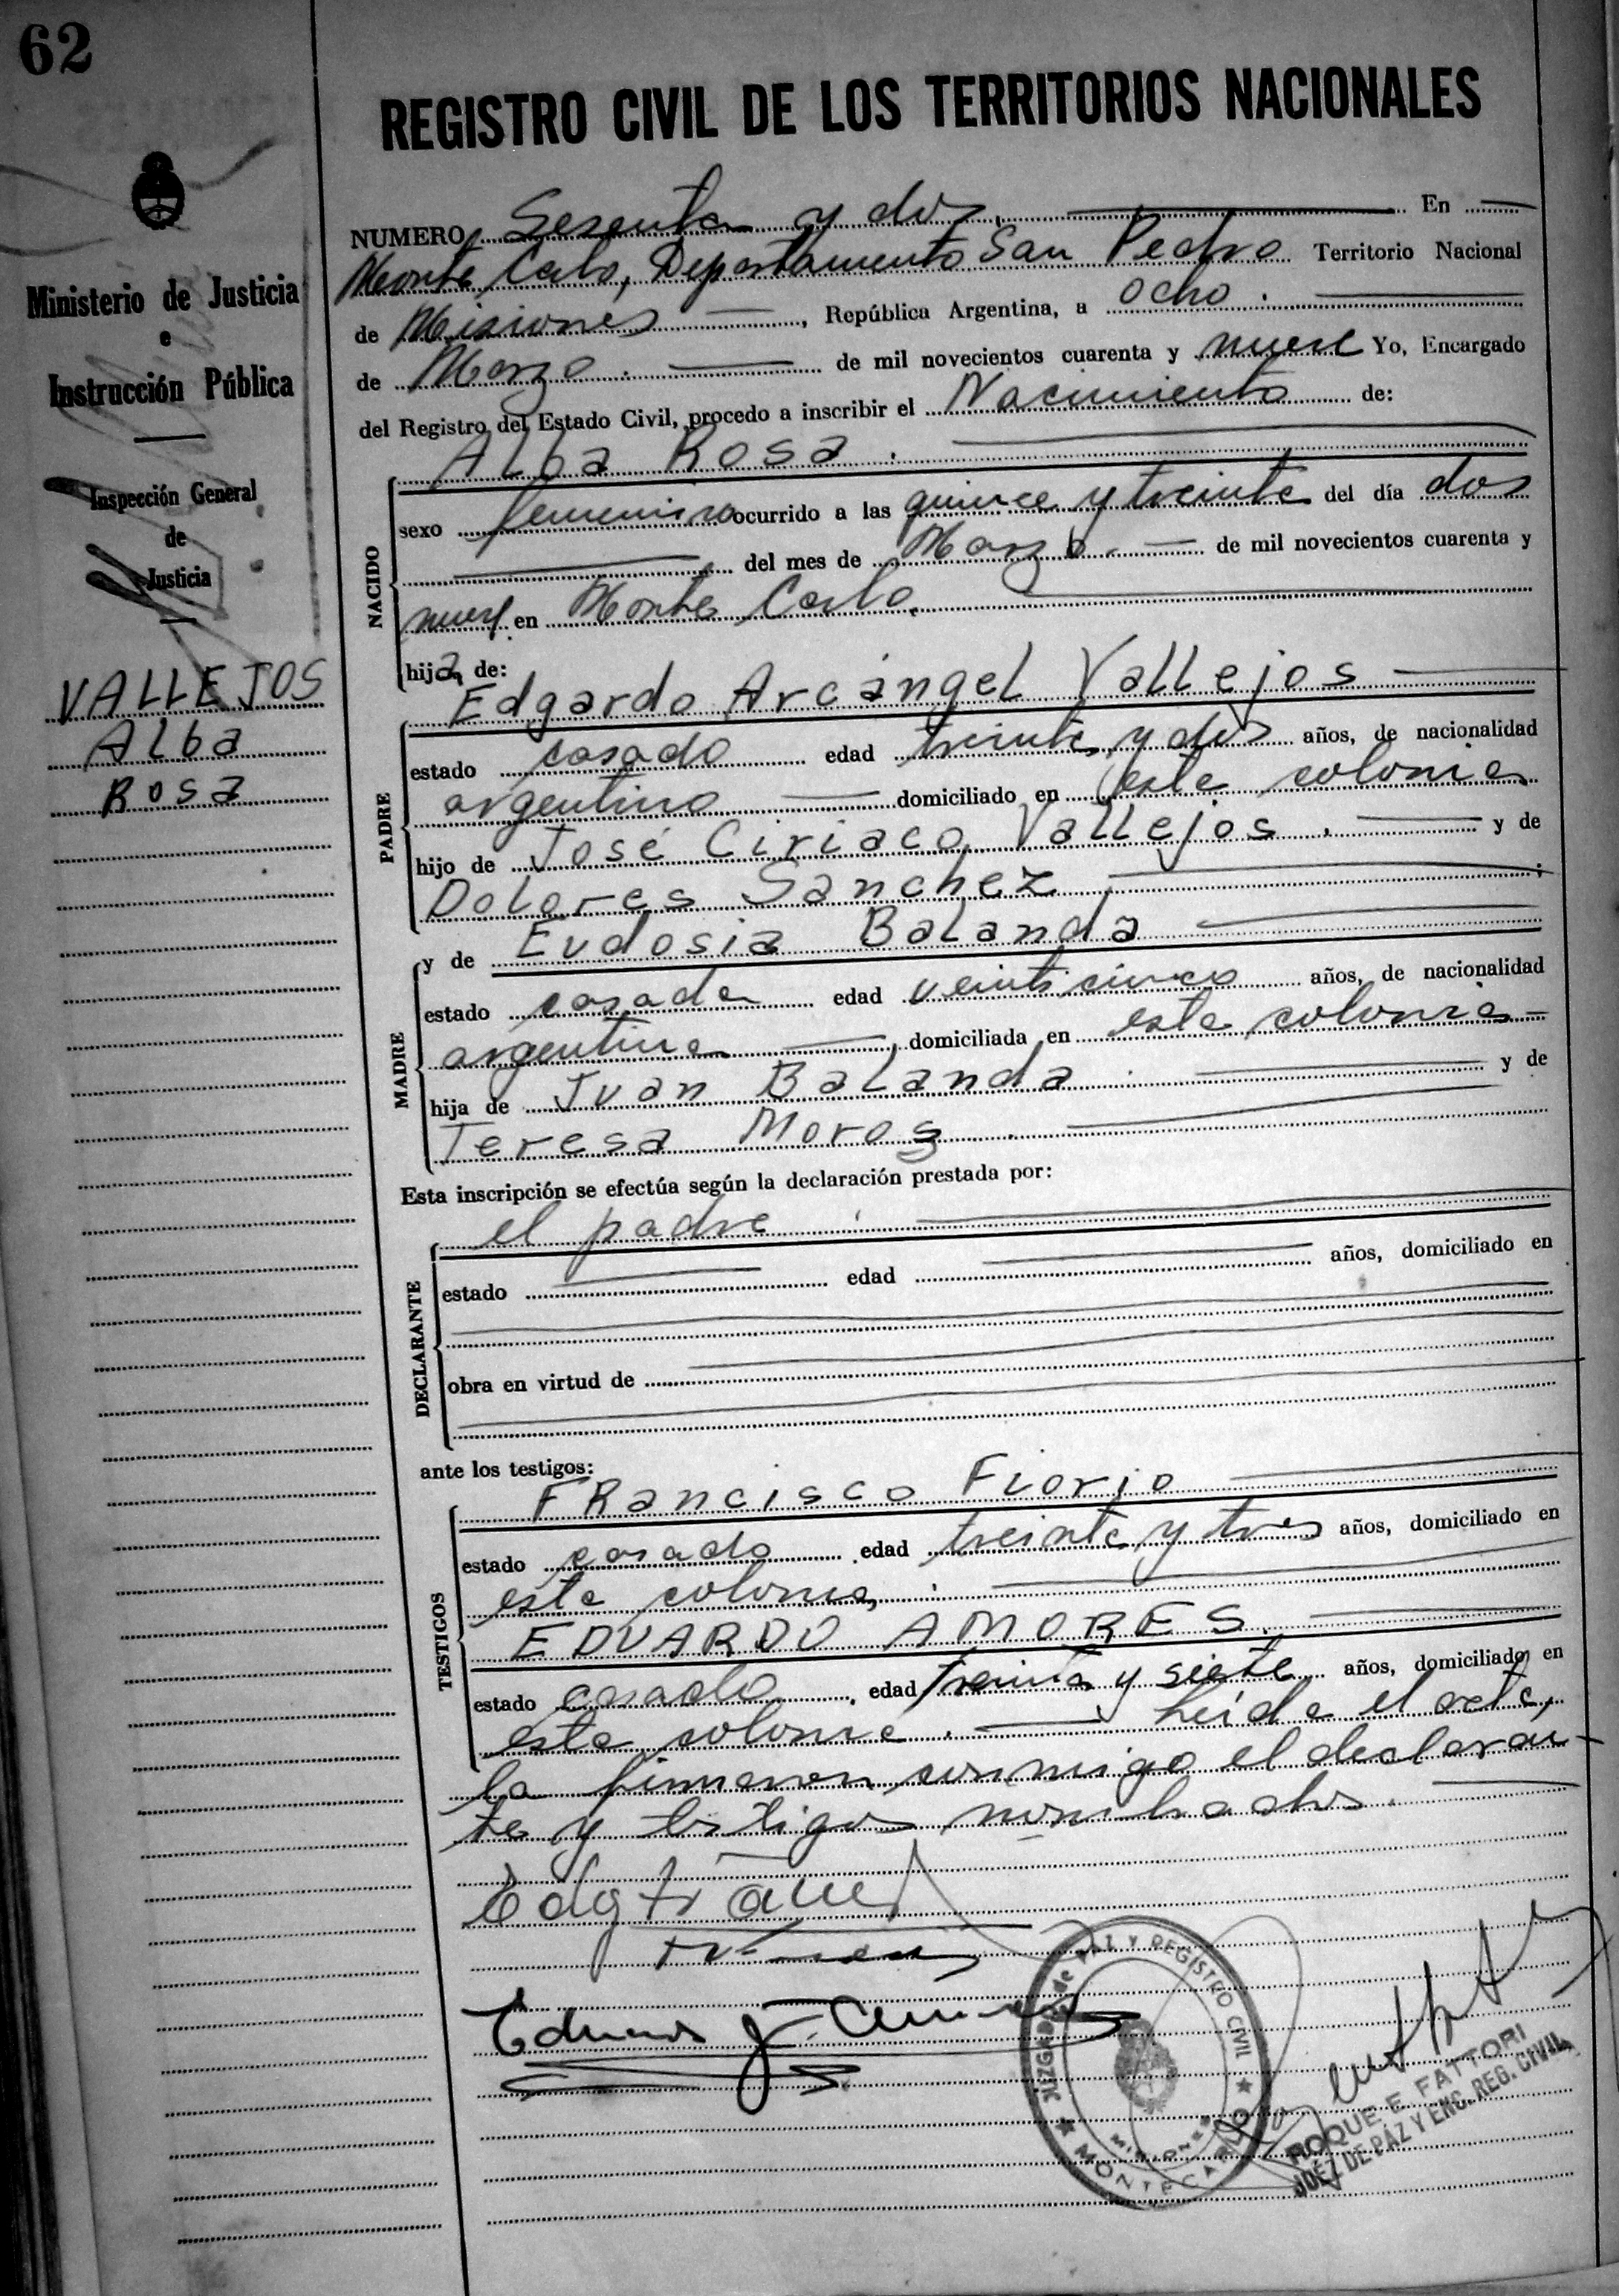 62
REGISTRO CIVIL DE LOS TERRITORIOS NACIONALES
Ministerio de Justicia
e
Instrucción Pública
Inspección General
de
Justicia
VALLEJOS
Alba
Rosa
NUMERO Sesenta y dos. En
Monte Carlo, Departamento San Pedro Territorio Nacional
de Misiones, República Argentina, a ocho.
de Marzo. de mil novecientos cuarenta y nueve Yo, Encargado
del Registro del Estado Civil, procedo a inscribir el Nacimiento de:
Alba Rosa.
NACIDO
sexo femenino ocurrido a las quince y treinta del día dos
del mes de Marzo. de mil novecientos cuarenta y
nueve en Monte Carlo.
hija de:
Edgardo Arcángel Vallejos
PADRE
estado casado edad treinta y dos años, de nacionalidad
argentino domiciliado en esta colonia
hijo de José Ciriaco Vallejos. y de
Dolores Sanchez
MADRE
y de Eudosia Balanda
estado casada edad veinticinco años, de nacionalidad
argentina, domiciliada en esta colonia
hija de Juan Balanda. y de
Teresa Moros.
Esta inscripción se efectúa según la declaración prestada por:
el padre.
DECLARANTE
estado edad años, domiciliado en
obra en virtud de
ante los testigos:
TESTIGOS
Francisco Fiorio
estado casado edad treinta y tres años, domiciliado en
esta colonia.
EDUARDO AMORES.
estado casado, edad treinta y siete años, domiciliado en
esta colonia. Leída el acta,
la firmaron conmigo el declaran-
te y testigos nombrados.
JUZGADO de PAZ Y REGISTRO CIVIL
MISIONES
MONTECARLO
ROQUE E. FATTORI
JUEZ DE PAZ Y ENC. REG. CIVIL